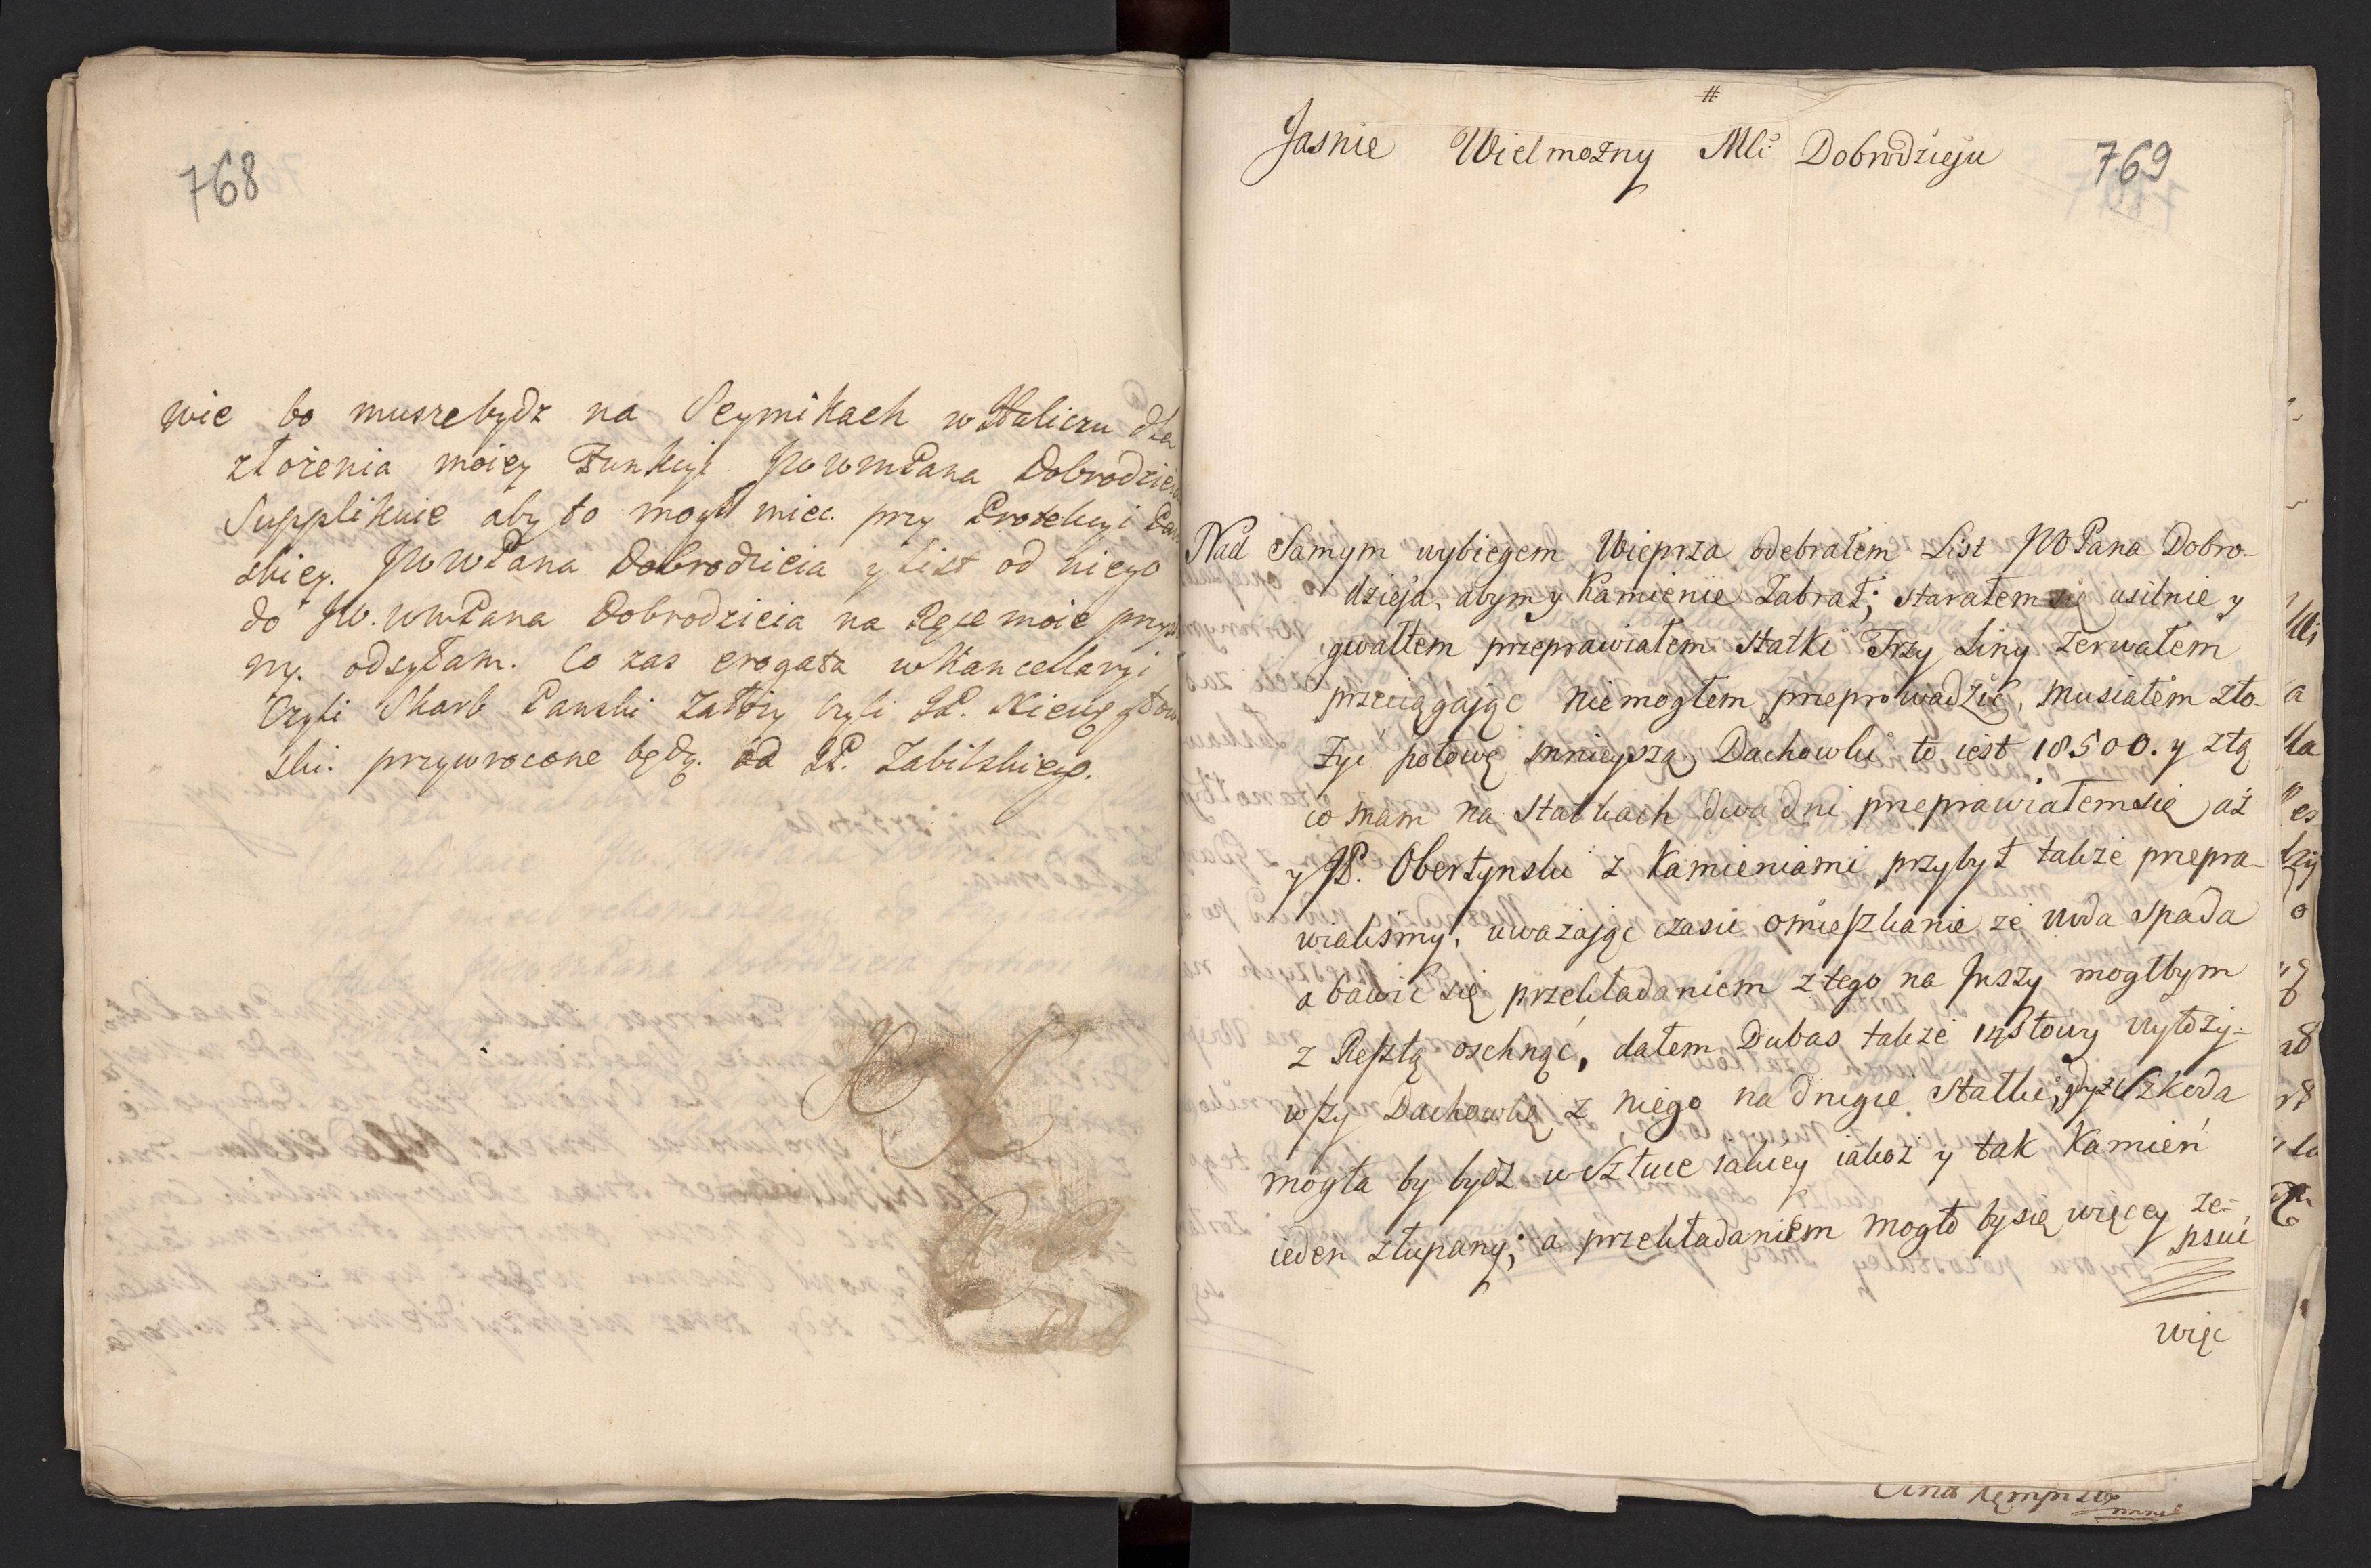 768
wie bo muszebydz na Seymikach w Haliczu dla
złożenia moiey Funkcyi JWWmPana Dobrodzieia
Supplikuie aby to mogł miec. przy Protekcyi Pan
skiey. JWWPana Dobrodzieia y List od niego
do JW. WmPana Dobrodzieia na Ręce moie
ny. odsyłam. Co zas erogata w Kancellaryi
Czyli Skarb Panski Załozy czyli JP.
ski. przywrocone będą. od JP. Zabilskiego.
#
Jasnie Wielmozny Mći Dobrodzieju
769
Nad Samym wybiegem Wieprza odebrałem List JWPana Dobro-
dzieja, abym y Kamienie Zabrał; starałem się usilnie y
gwałtem przeprawiałem Statki Trzy Liny zerwałem
przeciągając niemogłem przeprowadzić, musiałem zło-
zyć połowę mnieyszą Dachowki to iest 18500. y ztą
co mam na Statkach dwa dni przeprawiałemsię aż
y JP. Obertynski z Kamieniami przybył także przepra-
wialismy, uważając czasu omieszkanie że woda spada
a bawić się przekładaniem ztego na Inszy mogłbym
z Resztą oschnąć, dałem Dubas także Iąstowy wyłoży-
wszy Dachowkę z niego na drugie Statki; gdyż Szkoda
mogła by bydz w Sztuce iakiey iakoż y tak Kamień
ieden złupany; a przekładaniem mogło by się więcey ze-
psuć
więc